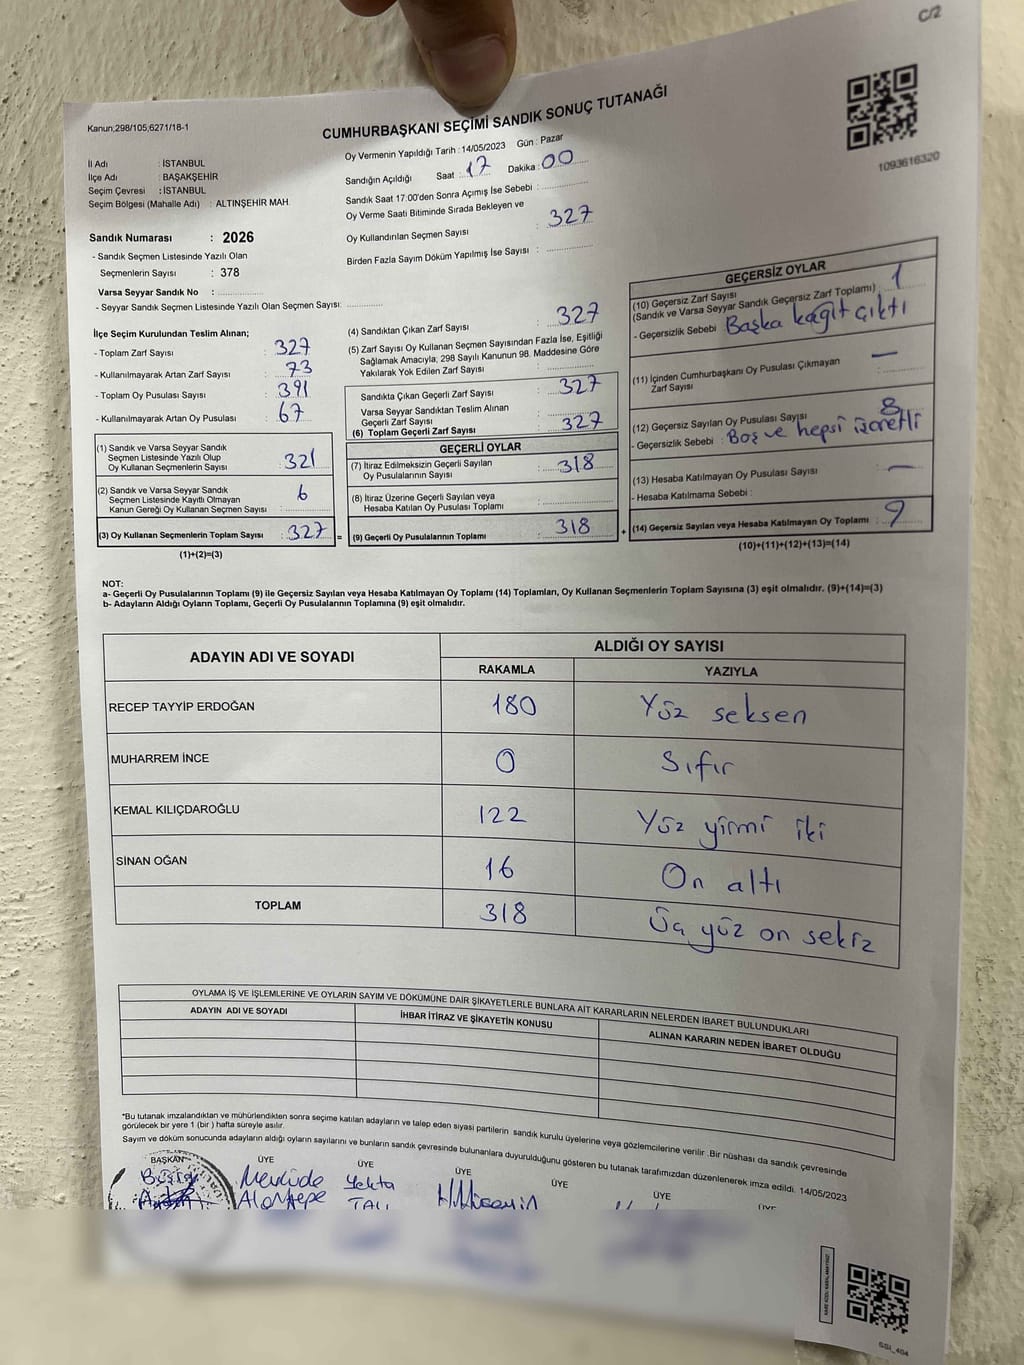 C/2
Kanun;298/105;6271/18-1
CUMHURBAŞKANI SEÇİMİ SANDIK SONUÇ TUTANAĞI
1093616320
İl Adı : İSTANBUL
İlçe Adı : BAŞAKŞEHİR
Seçim Çevresi : İSTANBUL
Seçim Bölgesi (Mahalle Adı) : ALTINŞEHİR MAH.
Sandık Numarası : 2026
- Sandık Seçmen Listesinde Yazılı Olan
Seçmenlerin Sayısı : 378
Varsa Seyyar Sandık No :
- Seyyar Sandık Seçmen Listesinde Yazılı Olan Seçmen Sayısı:
Oy Vermenin Yapıldığı Tarih : 14/05/2023 Gün : Pazar
Sandığın Açıldığı Saat : 17 Dakika : 00
Sandık Saat 17:00'den Sonra Açımış İse Sebebi :
Oy Verme Saati Bitiminde Sırada Bekleyen ve
Oy Kullandırılan Seçmen Sayısı : 327
Birden Fazla Sayım Döküm Yapılmış İse Sayısı :
İlçe Seçim Kurulundan Teslim Alınan;
- Toplam Zarf Sayısı : 327
- Kullanılmayarak Artan Zarf Sayısı : 73
- Toplam Oy Pusulası Sayısı : 391
- Kullanılmayarak Artan Oy Pusulası : 67
(1) Sandık ve Varsa Seyyar Sandık
Seçmen Listesinde Yazılı Olup
Oy Kullanan Seçmenlerin Sayısı : 321
(2) Sandık ve Varsa Seyyar Sandık
Seçmen Listesinde Kayıtlı Olmayan
Kanun Gereği Oy Kullanan Seçmen Sayısı : 6
(3) Oy Kullanan Seçmenlerin Toplam Sayısı : 327 =
(1)+(2)=(3)
(4) Sandıktan Çıkan Zarf Sayısı : 327
(5) Zarf Sayısı Oy Kullanan Seçmen Sayısından Fazla İse, Eşitliği
Sağlamak Amacıyla; 298 Sayılı Kanunun 98. Maddesine Göre
Yakılarak Yok Edilen Zarf Sayısı :
Sandıkta Çıkan Geçerli Zarf Sayısı : 327
Varsa Seyyar Sandıktan Teslim Alınan
Geçerli Zarf Sayısı :
(6) Toplam Geçerli Zarf Sayısı : 327
GEÇERLİ OYLAR
(7) İtiraz Edilmeksizin Geçerli Sayılan
Oy Pusulalarının Sayısı : 318
(8) İtiraz Üzerine Geçerli Sayılan veya
Hesaba Katılan Oy Pusulası Toplamı :
(9) Geçerli Oy Pusulalarının Toplamı : 318 +
GEÇERSİZ OYLAR
(10) Geçersiz Zarf Sayısı
(Sandık ve Varsa Seyyar Sandık Geçersiz Zarf Toplamı) : 1
- Geçersizlik Sebebi : Başka kağıt çıktı
(11) İçinden Cumhurbaşkanı Oy Pusulası Çıkmayan
Zarf Sayısı : —
(12) Geçersiz Sayılan Oy Pusulası Sayısı : 8
- Geçersizlik Sebebi : Boş ve hepsi işaretli
(13) Hesaba Katılmayan Oy Pusulası Sayısı : —
- Hesaba Katılmama Sebebi :
(14) Geçersiz Sayılan veya Hesaba Katılmayan Oy Toplamı : 9
(10)+(11)+(12)+(13)=(14)
NOT:
a- Geçerli Oy Pusulalarının Toplamı (9) ile Geçersiz Sayılan veya Hesaba Katılmayan Oy Toplamı (14) Toplamları, Oy Kullanan Seçmenlerin Toplam Sayısına (3) eşit olmalıdır. (9)+(14)=(3)
b- Adayların Aldığı Oyların Toplamı, Geçerli Oy Pusulalarının Toplamına (9) eşit olmalıdır.
ADAYIN ADI VE SOYADI
ALDIĞI OY SAYISI
RAKAMLA YAZIYLA
RECEP TAYYİP ERDOĞAN 180 Yüz seksen
MUHARREM İNCE 0 Sıfır
KEMAL KILIÇDAROĞLU 122 Yüz yirmi iki
SİNAN OĞAN 16 On altı
TOPLAM 318 Üç yüz on sekiz
OYLAMA İŞ VE İŞLEMLERİNE VE OYLARIN SAYIM VE DÖKÜMÜNE DAİR ŞİKAYETLERLE BUNLARA AİT KARARLARIN NELERDEN İBARET BULUNDUKLARI
ADAYIN ADI VE SOYADI
İHBAR İTİRAZ VE ŞİKAYETİN KONUSU
ALINAN KARARIN NEDEN İBARET OLDUĞU
*Bu tutanak imzalandıktan ve mühürlendikten sonra seçime katılan adayların ve talep eden siyasi partilerin sandık kurulu üyelerine veya gözlemcilerine verilir .Bir nüshası da sandık çevresinde
görülecek bir yere 1 (bir ) hafta süreyle asılır.
Sayım ve döküm sonucunda adayların aldığı oyların sayılarını ve bunların sandık çevresinde bulunanlara duyurulduğunu gösteren bu tutanak tarafımızdan düzenlenerek imza edildi. 14/05/2023
BAŞKAN ÜYE ÜYE ÜYE ÜYE ÜYE ÜYE
Mevlüde
Yekta